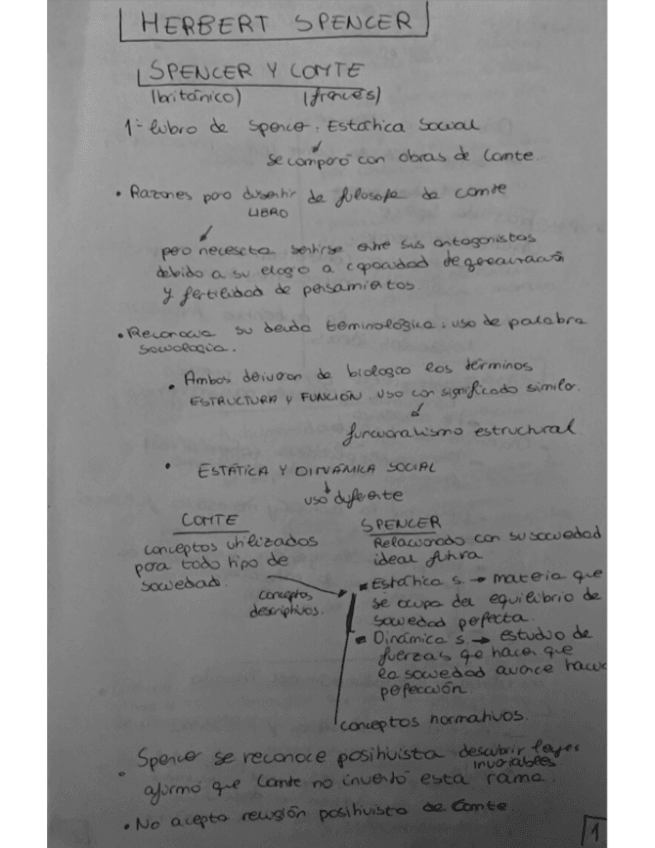 HERBERT SPENCER
SPENCER Y COMTE
(británico) (francés)
1º libro de Spencer: Estática Social
se comparó con obras de Comte.
• Razones para disentir de filosofía de comte
LIBRO
pero necesita sentirse entre sus antagonistas
debido a su elogio a capacidad de generalización
y fertilidad de pensamientos
• Reconocía su deuda terminológica: uso de palabra
sociología.
• Ambos derivaron de biología los términos
ESTRUCTURA Y FUNCIÓN. uso con significado similar.
funcionalismo estructural
• ESTÁTICA Y DINÁMICA SOCIAL
uso diferente
COMTE SPENCER
conceptos utilizados
para todo tipo de
sociedad.
conceptos
descriptivos.
Relacionado con su sociedad
ideal futura
Estática s. → materia que
se ocupa del equilibrio de
sociedad perfecta.
Dinámica s. → estudio de
fuerzas qe hacen que
la sociedad avance hacia
perfección.
conceptos normativos.
• Spencer se reconoce positivista descubrir leyes
invariables
afirmó que Comte no inventó esta rama.
• No acepta religión positivista de Comte.
1